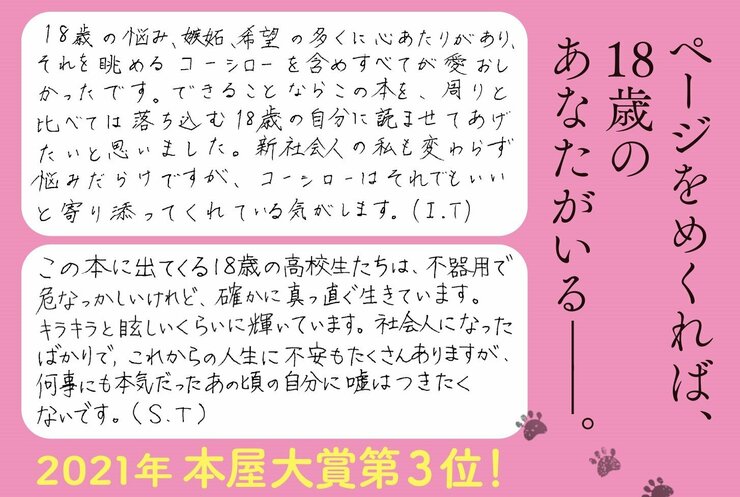 ページをめくれば、
18歳の
あなたがいる――。
18歳の悩み、嫉妬、希望の多くに心あたりがあり、
それを眺めるコーシローを含めすべてが愛おし
かったです。できることならこの本を、周りと
比べては落ち込む18歳の自分に読ませてあげ
たいと思いました。新社会人の私も変わらず
悩みだらけですが、コーシローはそれでもいい
と寄り添ってくれている気がします。(I.T)
この本に出てくる18歳の高校生たちは、不器用で
危なっかしいけれど、確かに真っ直ぐ生きています。
キラキラと眩しいくらいに輝いています。社会人になった
ばかりで、これからの人生に不安もたくさんありますが、
何事にも本気だったあの頃の自分に嘘はつきたく
ないです。(S.T)
2021年 本屋大賞第3位!